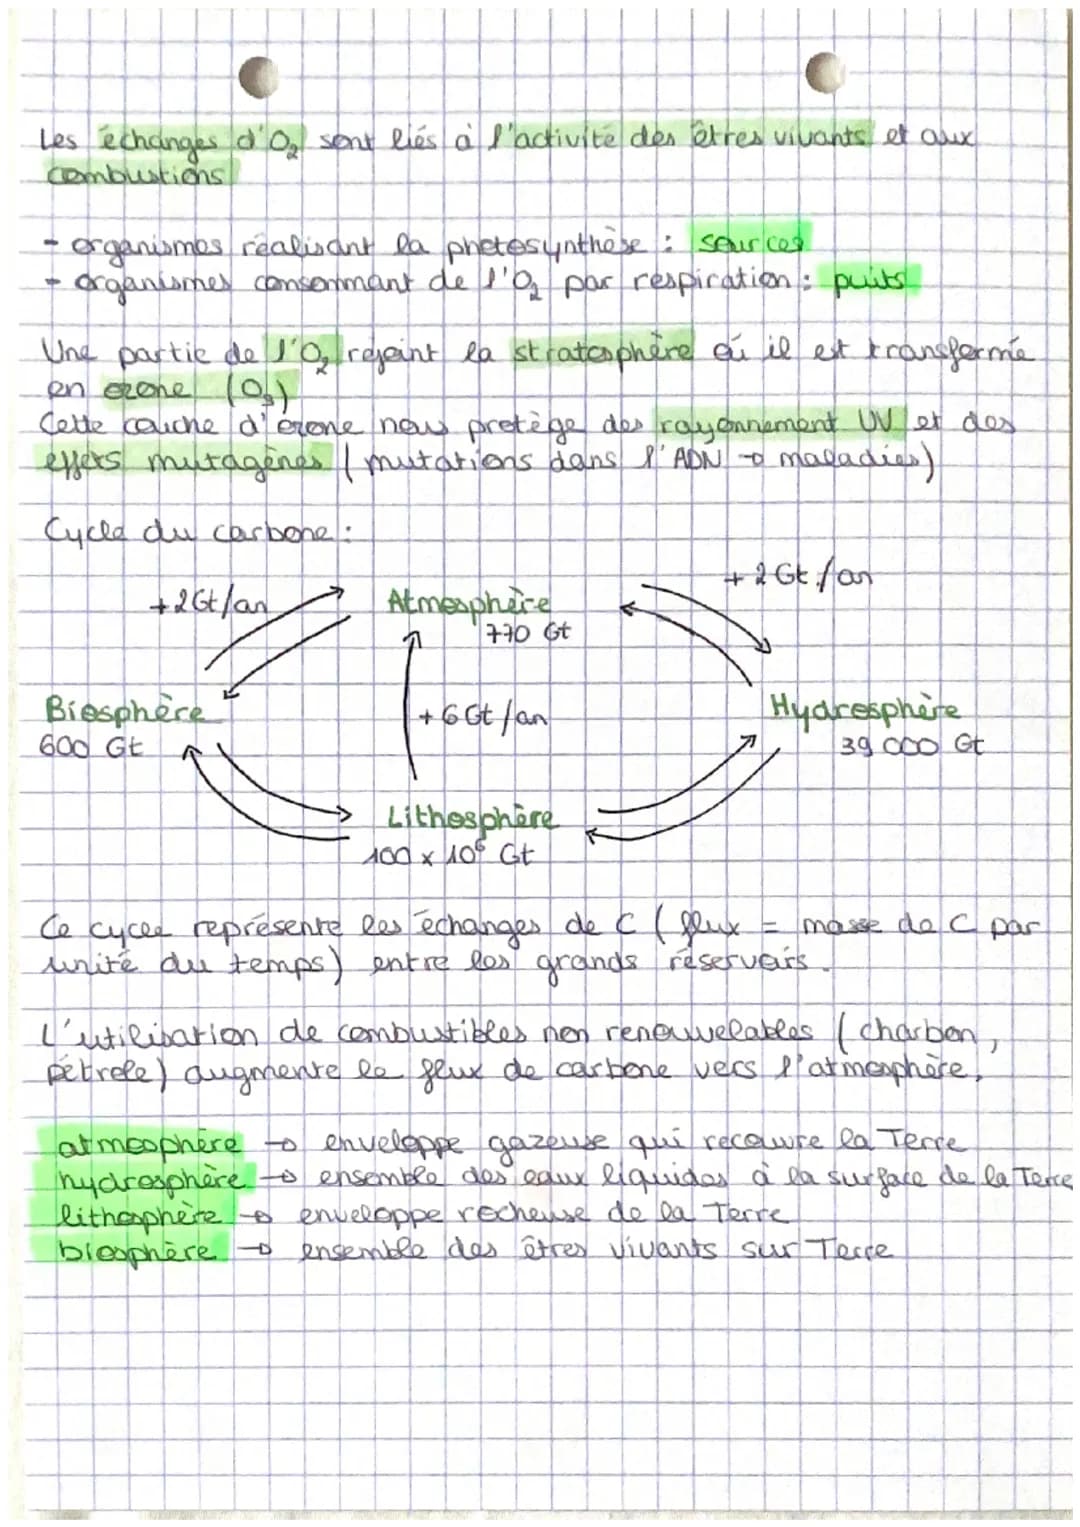 Les échanges d'O₂ sont liés à l'activité des êtres vivants et aux
combustions
- organismes réalisant la photosynthèse : sources
- organismes consommant de l'O₂ par respiration : puits
Une partie de l'O₂ rejoint la stratosphère où il est transformé
en ozone (O₃)
Cette couche d'ozone nous protège des rayonnement UV et des
effets mutagènes (mutations dans l'ADN → maladies)
Cycle du carbone :
+ 2 Gt/an
+2Gt/an
Atmosphère
770 Gt
Biosphère
600 Gt
+ 6 Gt/an
Hydrosphère
39 000 Gt
Lithosphère
100 x 10⁶ Gt
Ce cycle représente les échanges de C (flux = masse de C par
unité du temps) entre les grands réservoirs.
L'utilisation de combustibles non renouvelables (charbon,
pétrole) augmente le flux de carbone vers l'atmosphère.
atmosphère → enveloppe gazeuse qui recouvre la Terre
hydrosphère → ensemble des eaux liquides à la surface de la Terre
lithosphère → enveloppe rocheuse de la Terre
biosphère → ensemble des êtres vivants sur Terre